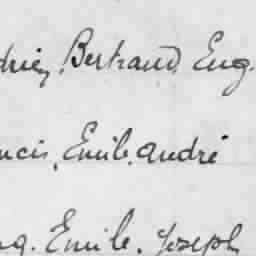 drien, Bertrand, Eug.
ncis, Emile, André
ug. Emile, Joseph